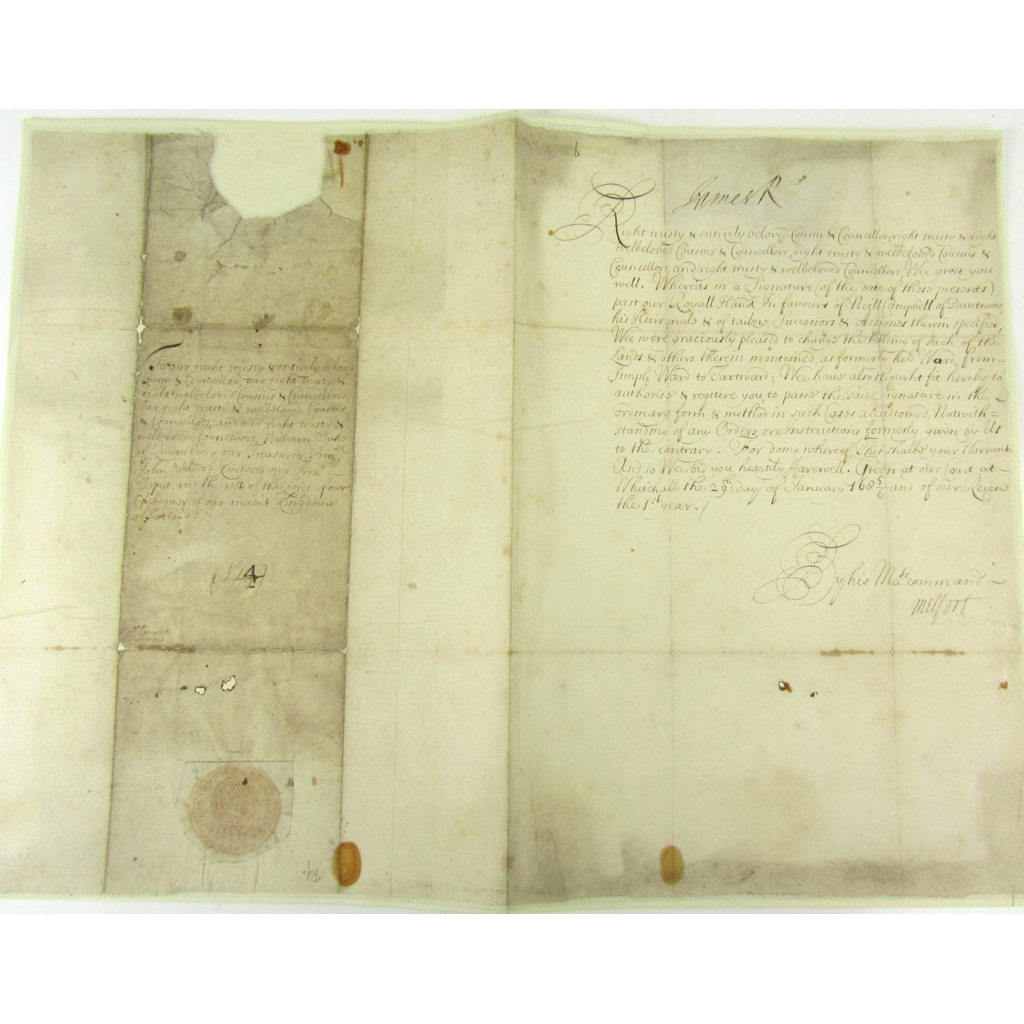 To our right trusty & entirely beloved
Cousin & Councellor, our right trusty &
right welbeloved Cousins & Councellors
our right trusty & welbeloved Cousins
& Councellors, and our right trusty &
welbeloved Councellors, William Duke
of Queensberry our Treasurer
John of Kintore our
Deput, and the rest of the Lords of our
Exchequer of our ancient Kingdome
of Scotland
6
James R
Right trusty & entirely beloved Cousin & Councellor, right trusty & right
welbeloved Cousins & Councellors, right trusty & welbeloved Cousins &
Councellors, and right trusty & welbeloved Councellors, Wee greet you
well. Whereas in a Signature (of the date of these presents)
past our Royall Hand, In favours of Neill Campbell of Duntroone
his Heirs male & of tailzie, Successors & Assignes therein specifed,
Wee were graciously pleased to change the holding of such of the
Lands & others therein mentioned, as formerly held Ward, from
Simple Ward to Taxtward; Wee have also thought fit hereby to
authorise & require you to passe the said Signature in the
ordinary form & method in such Cases accustomed, Notwith=
standing of any Orders, or Instructions formerly given by Us
to the contrary. For doing whereof, This shalbe your Warrant
And so Wee bid you heartily farewell. Given at our Court at
Whitehall the 29th: day of January 1685/6 and of our Reigne
the 1st year. /
By his Mats command
Melfort